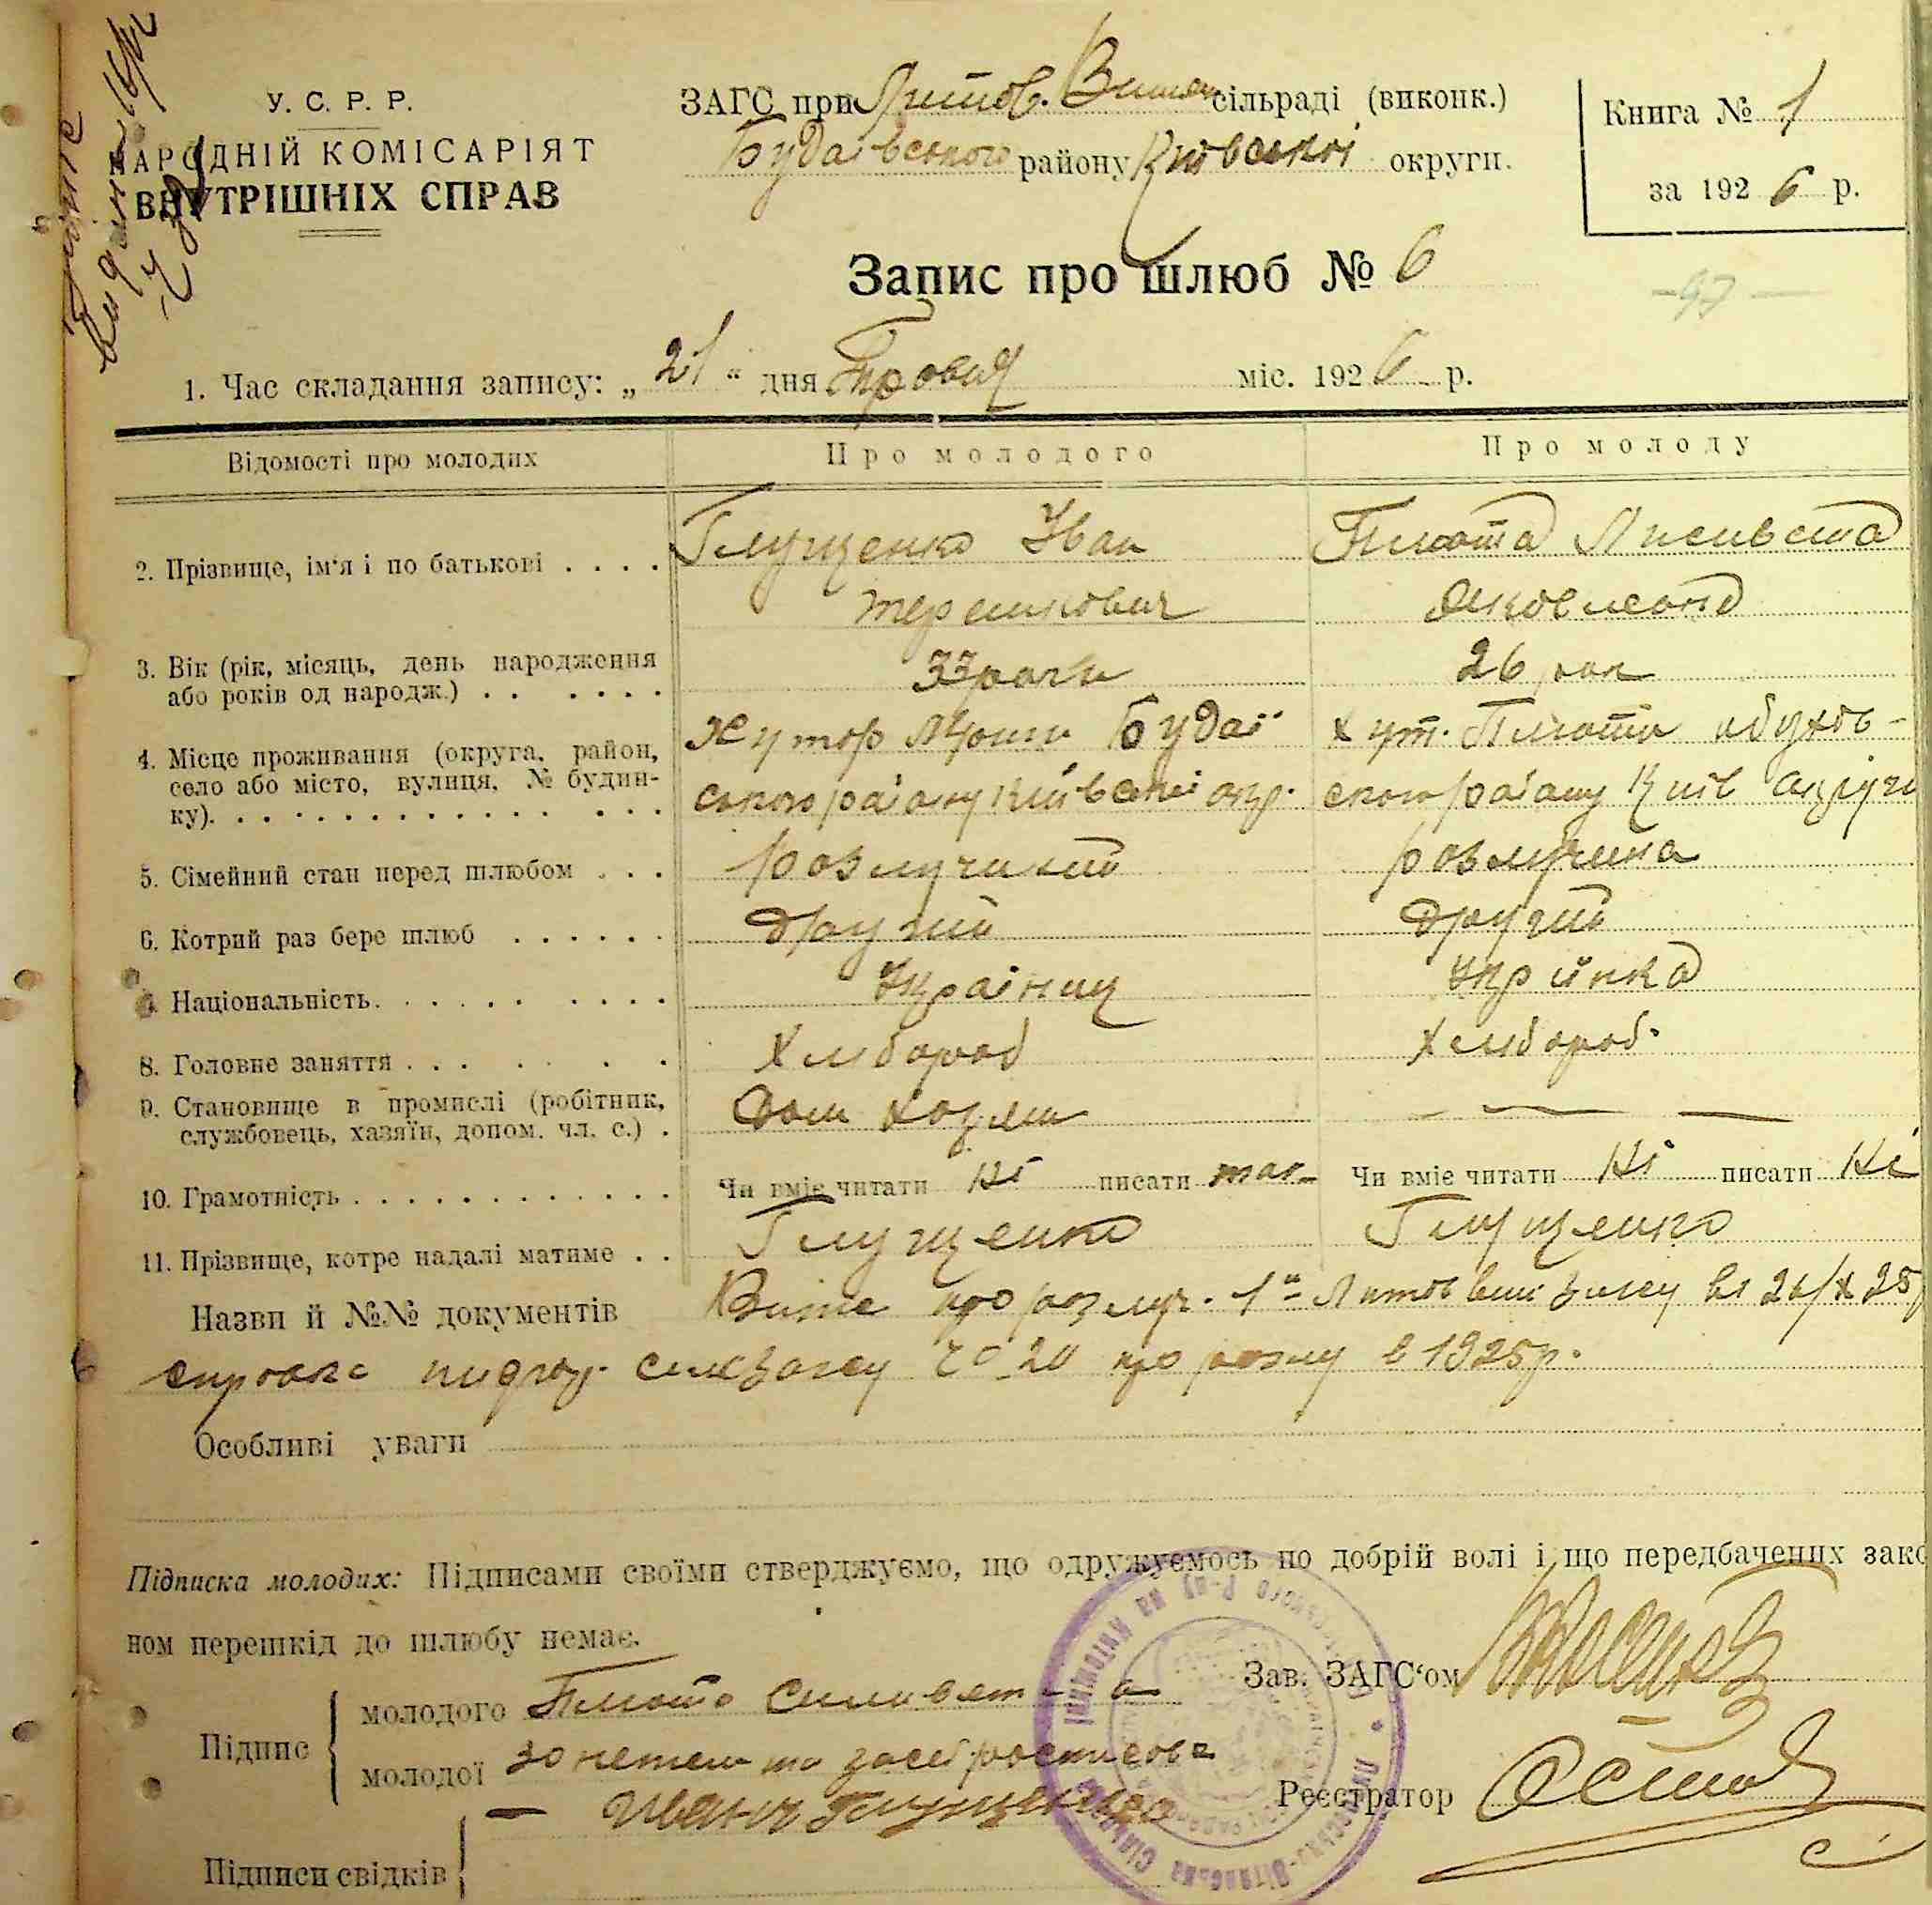 У. С. Р. Р.
НАРОДНІЙ КОМІСАРІЯТ
ВНУТРІШНІХ СПРАВ
ЗАГС при Литов. сільраді (виконк.)
Будаївського району Київської округи.
Книга № 1
за 1926 р.
Запис про шлюб № 6
97
1. Час складання запису: „21“ дня міс. 1926 р.
Відомості про молодих
Про молодого
Про молоду
2. Прізвище, ім'я і по батькові . . . .
Глущенко Іван
Терешкович
Плюта Лисивета
Яковлевна
3. Вік (рік, місяць, день народження
або років од народж.) . . . . . .
33 роки
26 рок
4. Місце проживання (округа, район,
село або місто, вулиця, № будин-
ку). . . . . . . . . . . . . . . .
Хутор Будаї
ського району Київскої окр.
хут. Плюти обухов-
ского району Київ округи
5. Сімейний стан перед шлюбом . . .
розлучений
розлучена
6. Котрий раз бере шлюб . . . . . .
другий
другий
7. Національність. . . . . . . . . .
Українец
Укрїнка
8. Головне заняття . . . . . .
Хлібороб
Хлібороб.
9. Становище в промислі (робітник,
службовець, хазяїн, допом. чл. с.) .
Дом хозяин
10. Грамотність . . . . . . . . . . . . .
Чи вміє читати Ні писати так
Чи вміє читати Ні писати Ні
11. Прізвище, котре надалі матиме . .
Глущенко
Глущенко
Назви й №№ документів про розлуч. Литов 26/X 25р
справка № 20 про розлу в 1925р.
Особливі уваги
Підписка молодих: Підписами своїми стверджуємо, що одружуємось по добрій волі і що передбачених зако
ном перешкід до шлюбу немає.
Підпис
молодого Плюто Силивет - а
молодої за неграм
Иванъ Глущенко
Зав. ЗАГС‘ом
Реєстратор
Підписи свідків